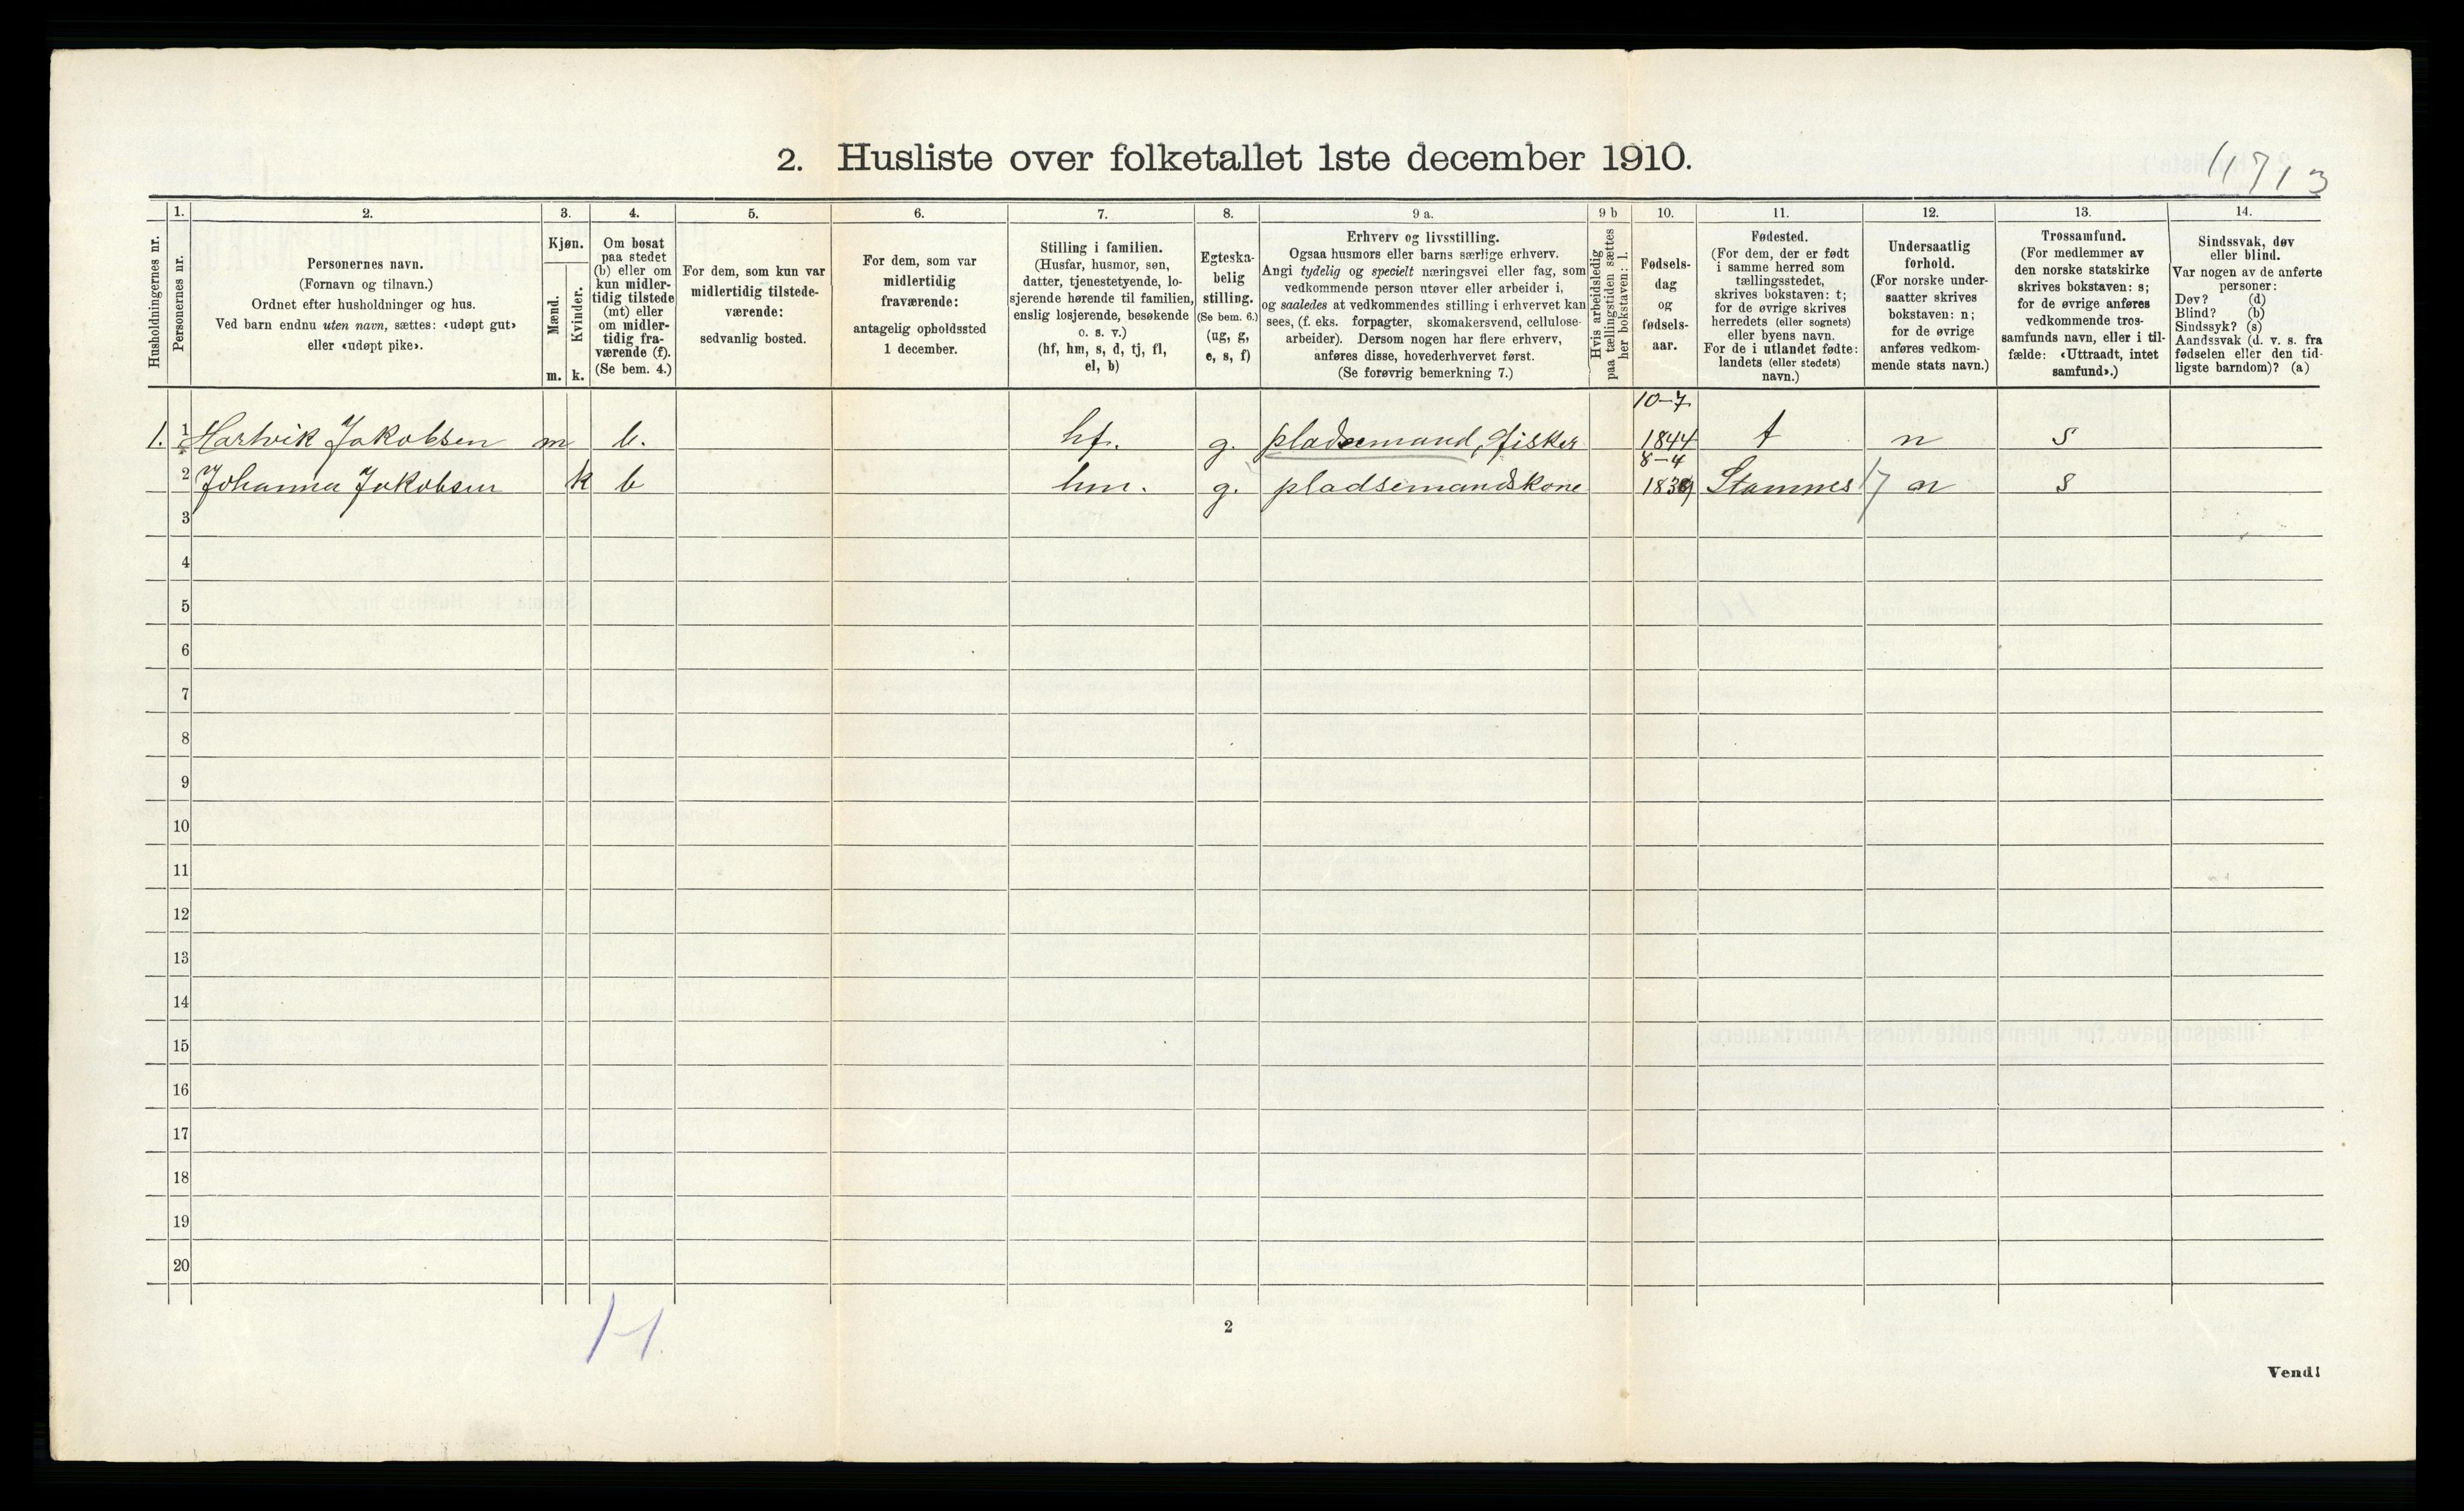 2. Husliste over folketallet 1ste december 1910.
11713
Husholdningernes nr.
1.
Personernes nr.
2.
Personernes navn.
(Fornavn og tilnavn.)
Ordnet efter husholdninger og hus.
Ved barn endnu uten navn, sættes: «udøpt gut»
eller «udøpt pike».
3.
Kjøn.
Mænd.
Kvinder.
m. k.
4.
Om bosat
paa stedet
(b) eller om
kun midler-
tidig tilstede
(mt) eller
om midler-
tidig fra-
værende (f).
(Se bem. 4.)
5.
For dem, som kun var
midlertidig tilstede-
værende:
sedvanlig bosted.
6.
For dem, som var
midlertidig
fraværende:
antagelig opholdssted
1 december.
7.
Stilling i familien.
(Husfar, husmor, søn,
datter, tjenestetyende, lo-
sjerende hørende til familien,
enslig losjerende, besøkende
o. s. v.)
(hf, hm, s, d, tj, fl,
el, b)
8.
Egteska-
belig
stilling.
(Se bem. 6.)
(ug, g,
e, s, f)
9 a.
Erhverv og livsstilling.
Ogsaa husmors eller barns særlige erhverv.
Angi tydelig og specielt næringsvei eller fag, som
vedkommende person utøver eller arbeider i,
og saaledes at vedkommendes stilling i erhvervet kan
sees, (f. eks. forpagter, skomakersvend, cellulose-
arbeider). Dersom nogen har flere erhverv,
anføres disse, hovederhvervet først.
(Se forøvrig bemerkning 7.)
9 b
Hvis arbeidsledig
paa tællingstiden sættes
her bokstaven: l.
10.
Fødsels-
dag
og
fødsels-
aar.
11.
Fødested.
(For dem, der er født
i samme herred som
tællingsstedet,
skrives bokstaven: t;
for de øvrige skrives
herredets (eller sognets)
eller byens navn.
For de i utlandet fødte:
landets (eller stedets)
navn.)
12.
Undersaatlig
forhold.
(For norske under-
saatter skrives
bokstaven: n;
for de øvrige
anføres vedkom-
mende stats navn.)
13.
Trossamfund.
(For medlemmer av
den norske statskirke
skrives bokstaven: s;
for de øvrige anføres
vedkommende tros-
samfunds navn, eller i til-
fælde: «Uttraadt, intet
samfund».)
14.
Sindssvak, døv
eller blind.
Var nogen av de anførte
personer:
Døv? (d)
Blind? (b)
Sindssyk? (s)
Aandssvak (d. v. s. fra
fødselen eller den tid-
ligste barndom)? (a)
10-7
1. 1 Hartvik Jakobsen m b. hf. g. pladsemand, fisker 1844 t n s
8-4
2 Johanna Jakobsen k b hm. g. pladsemandskone 1839 Stamnes 17 n s
3
4
5
6
7
8
9
10
11
12
13
14
15
16
17
18
19
20
1-1
2
Vend!